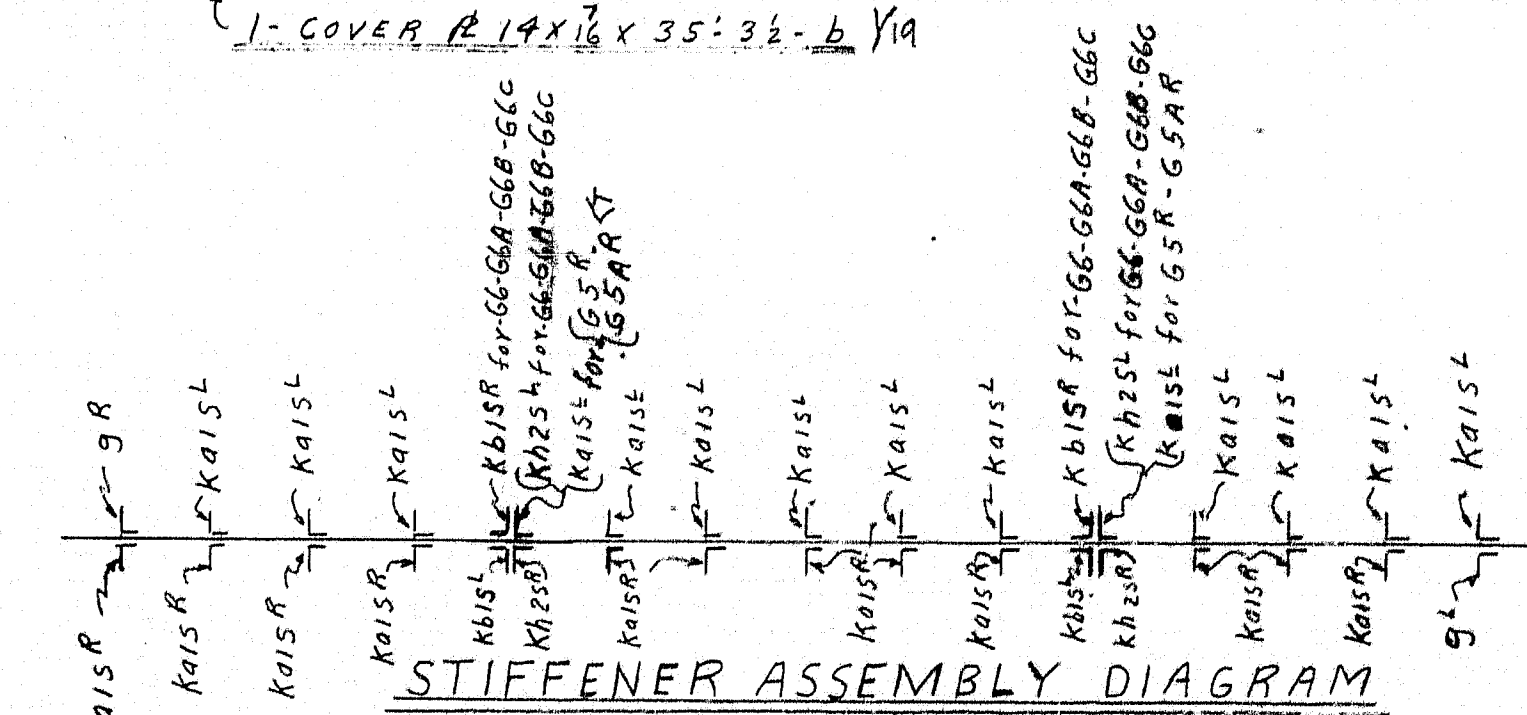 1- COVER PL 14 x 7/16 x 35'-3 1/2 - b Y19
gR
Ka1SL
Ka1SL
Ka1SL
Kb1SR for-G6-G6A-G6B-G6C
Kh2SL for-G6-G6A-G6B-G6C
Ka1SL for G5R-G5AR
Ka1SL
Ka1SL
Ka1SL
Ka1SL
Ka1SL
Kb1SR for-G6-G6A-G6B-G6C
Kh2SL for G6-G6A-G6B-G6C
Ka1SL for G5R-G5AR
Ka1SL
Ka1SL
Ka1SL
Ka1SL
Ka1SR
Ka1SR
Ka1SR
Kb1SL
Kh2SR
Ka1SR
Ka1SR
Ka1SR
Kb1SL
Kh2SR
Ka1SR
Ka1SR
gL
STIFFENER ASSEMBLY DIAGRAM